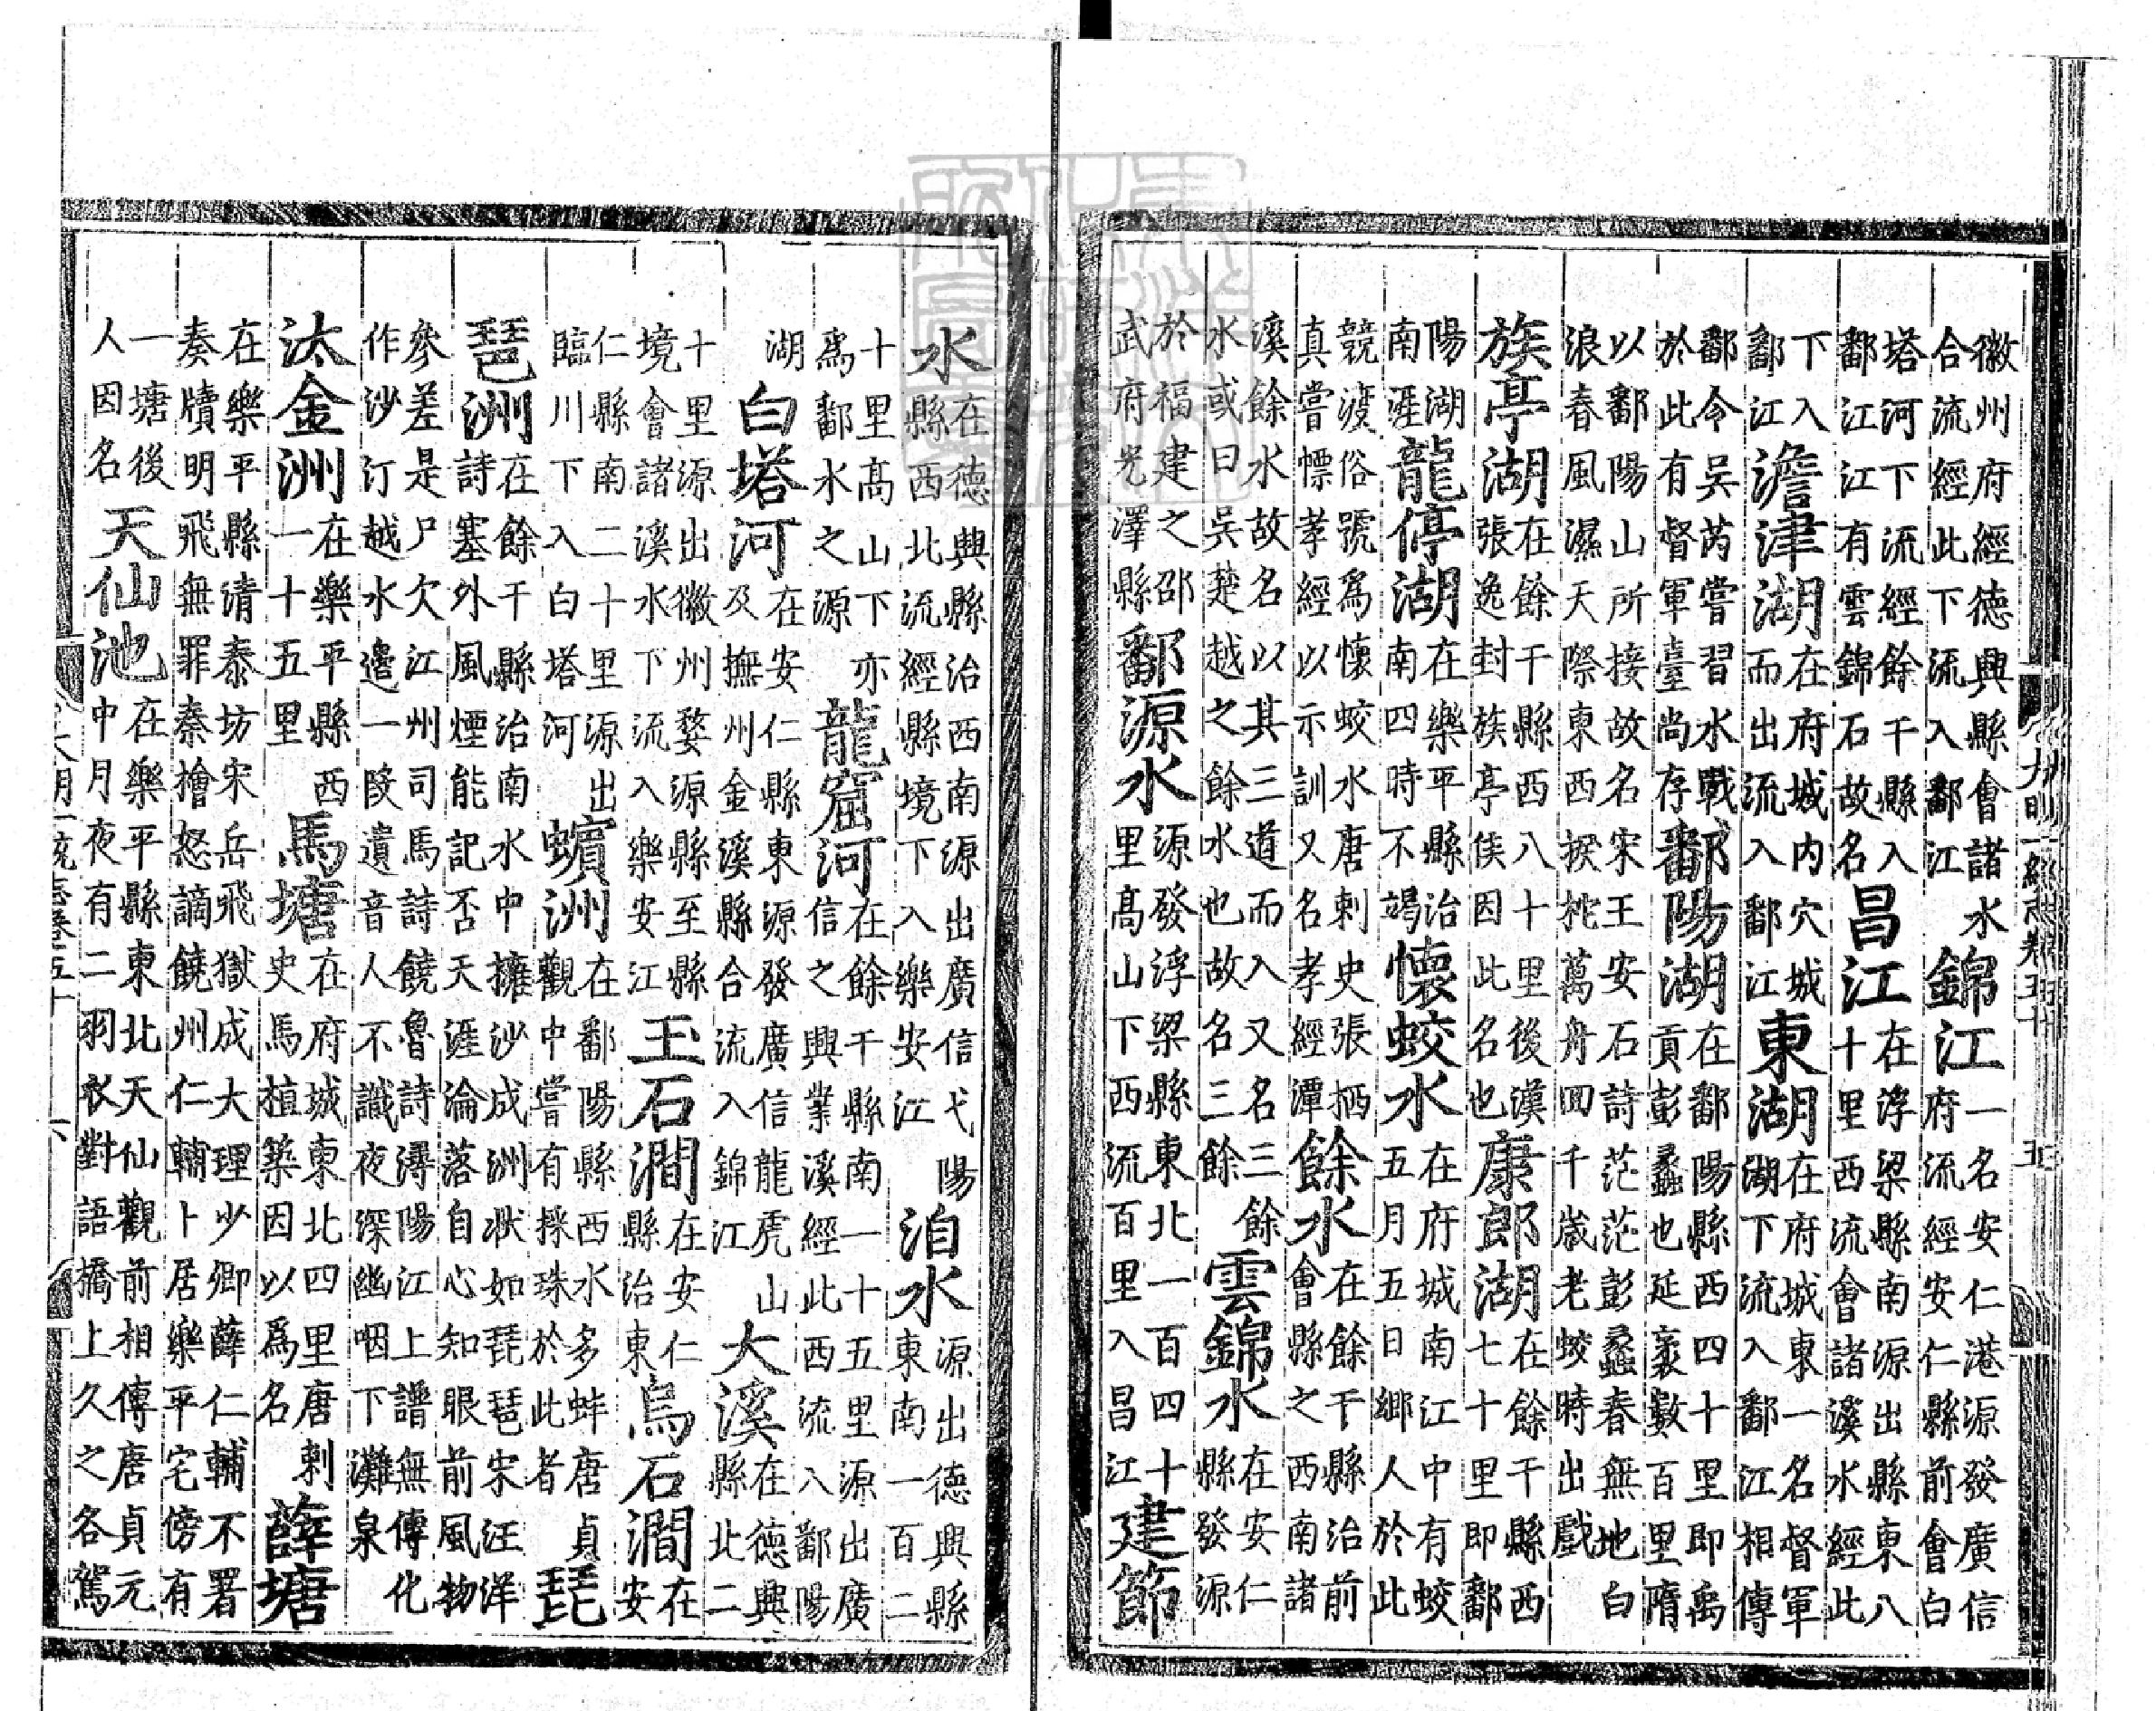 徽州府經德興縣會諸水合流經此下流入鄱江錦江一名安仁港源發廣信府流經安仁縣前會白
塔河下流經餘干縣入鄱江江有雲錦石故名昌江在浮梁縣南源出縣東八十里西流會諸溪水經此
下入鄱江澹津湖在府城內穴城而出流入鄱江東湖在府城東一名督軍湖下流入鄱江相傳
鄱令吳芮嘗習水戰於此有督軍臺尚存鄱陽湖在鄱陽縣西四十里即禹貢彭蠡也延袤數百里隋
以鄱陽山所接故名宋王安石詩茫茫彭蠡春無地白浪春風濕天際東西捩柁萬舟回千歲老蛟時出戲
族亭湖在餘干縣西八十里後漢張逸封族亭侯因此名也康郎湖在餘干縣西七十里即鄱
陽湖南涯龍停湖在樂平縣治南四時不竭懷蛟水在府城南江中有蛟五月五日鄉人於此
競渡俗號爲懷蛟水唐刺史張栖真嘗慓孝經以示訓又名孝經潭餘水在餘干縣治前會縣之西南諸
溪餘水故名以其三道而入又名三餘水或曰吳楚越之餘水也故名三餘雲錦水在安仁縣發源
於福建之邵武府光澤縣鄱源水源發浮梁縣東北一百四十里高山下西流百里入昌江建節
水在德興縣治西南源出廣信弋陽縣西北流經縣境下入樂安江洎水源出德興縣東南一百二
十里高山下亦爲鄱水之源龍窟河在餘干縣南一十五里源出廣信之興業溪經此西流入鄱陽
湖白塔河在安仁縣東源發廣信龍虎山及撫州金溪縣合流入錦江大溪在德興縣北二
十里源出徽州婺源縣至縣境會諸溪水下流入樂安江玉石澗在安仁縣治東烏石澗在安
仁縣南二十里源出臨川下入白塔河蠙洲在鄱陽縣西水多蚌唐貞觀中嘗有採珠於此者琵
琶洲在餘干縣治南水中擁沙成洲狀如琵琶宋汪洋詩塞外風煙能記否天涯淪落自心知眼前風物
參差是尸欠江州司馬詩饒魯詩潯陽江上譜無傳化作沙汀越水邊一段遺音人不識夜深幽咽下灘泉
汰金洲在樂平縣西一十五里馬塘在府城東北四里唐刺史馬植築因以爲名薛塘
在樂平縣清泰坊宋岳飛獄成大理少卿薛仁輔不署奏牘明飛無罪秦檜怒謫饒州仁輔卜居樂平宅傍有
一塘後人因名天仙池在樂平縣東北天仙觀前相傳唐貞元中月夜有二羽衣對語橋上久之各駕
大明一統志卷五十
五
六